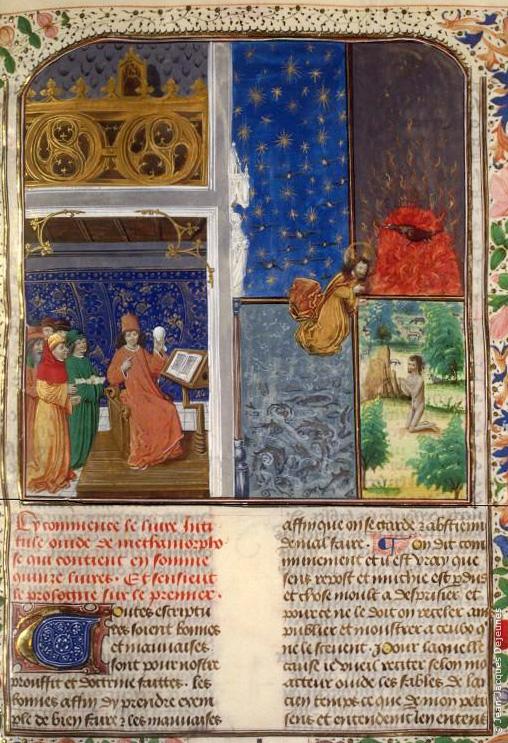 Cy commence le livre Inti
tule ouide de methamorpho
se qui contient en somme
quinze liures. Et sensieut
le prologue sur le premier.
Toutes escriptu
res soient bonnes
et mauuaises
sont pour nostre
prouffit et doctrine faittes. Les
bonnes affin dy prendre exem
ple de bien faire & les mauuaises
affin que on se garde & abstieni
de mal faire. On dit com
munement et il est vray que
sens repost et
et chose moult a desprisier et
pource ne le doit on receler ain
publier et monstrer a ceulx q
ne le sceuent. Pour laquelle
cause ie vueil reciter selon mo
acteur ouide les fables de lan
cien temps ce que de mon petit
sens et entendement len entens
© Jean-Jacques Dejeunes